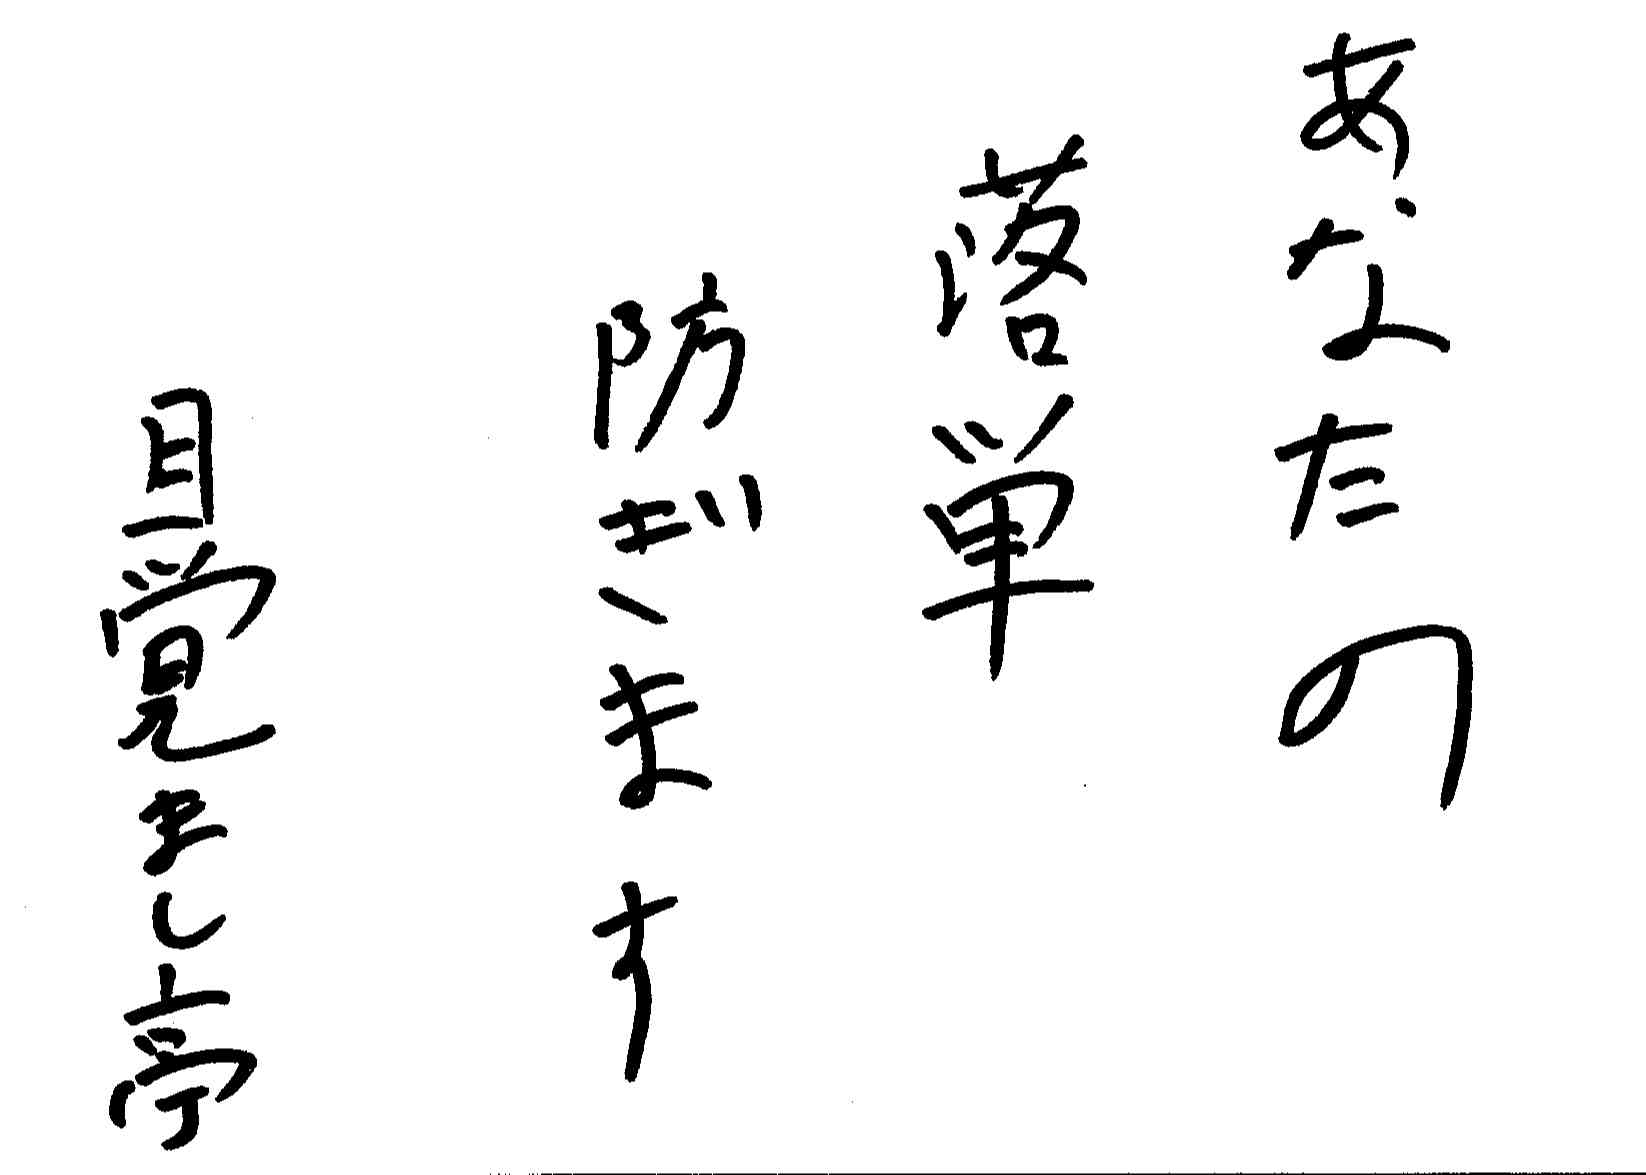 あなたの
落単
防ぎます
目覚まし亭